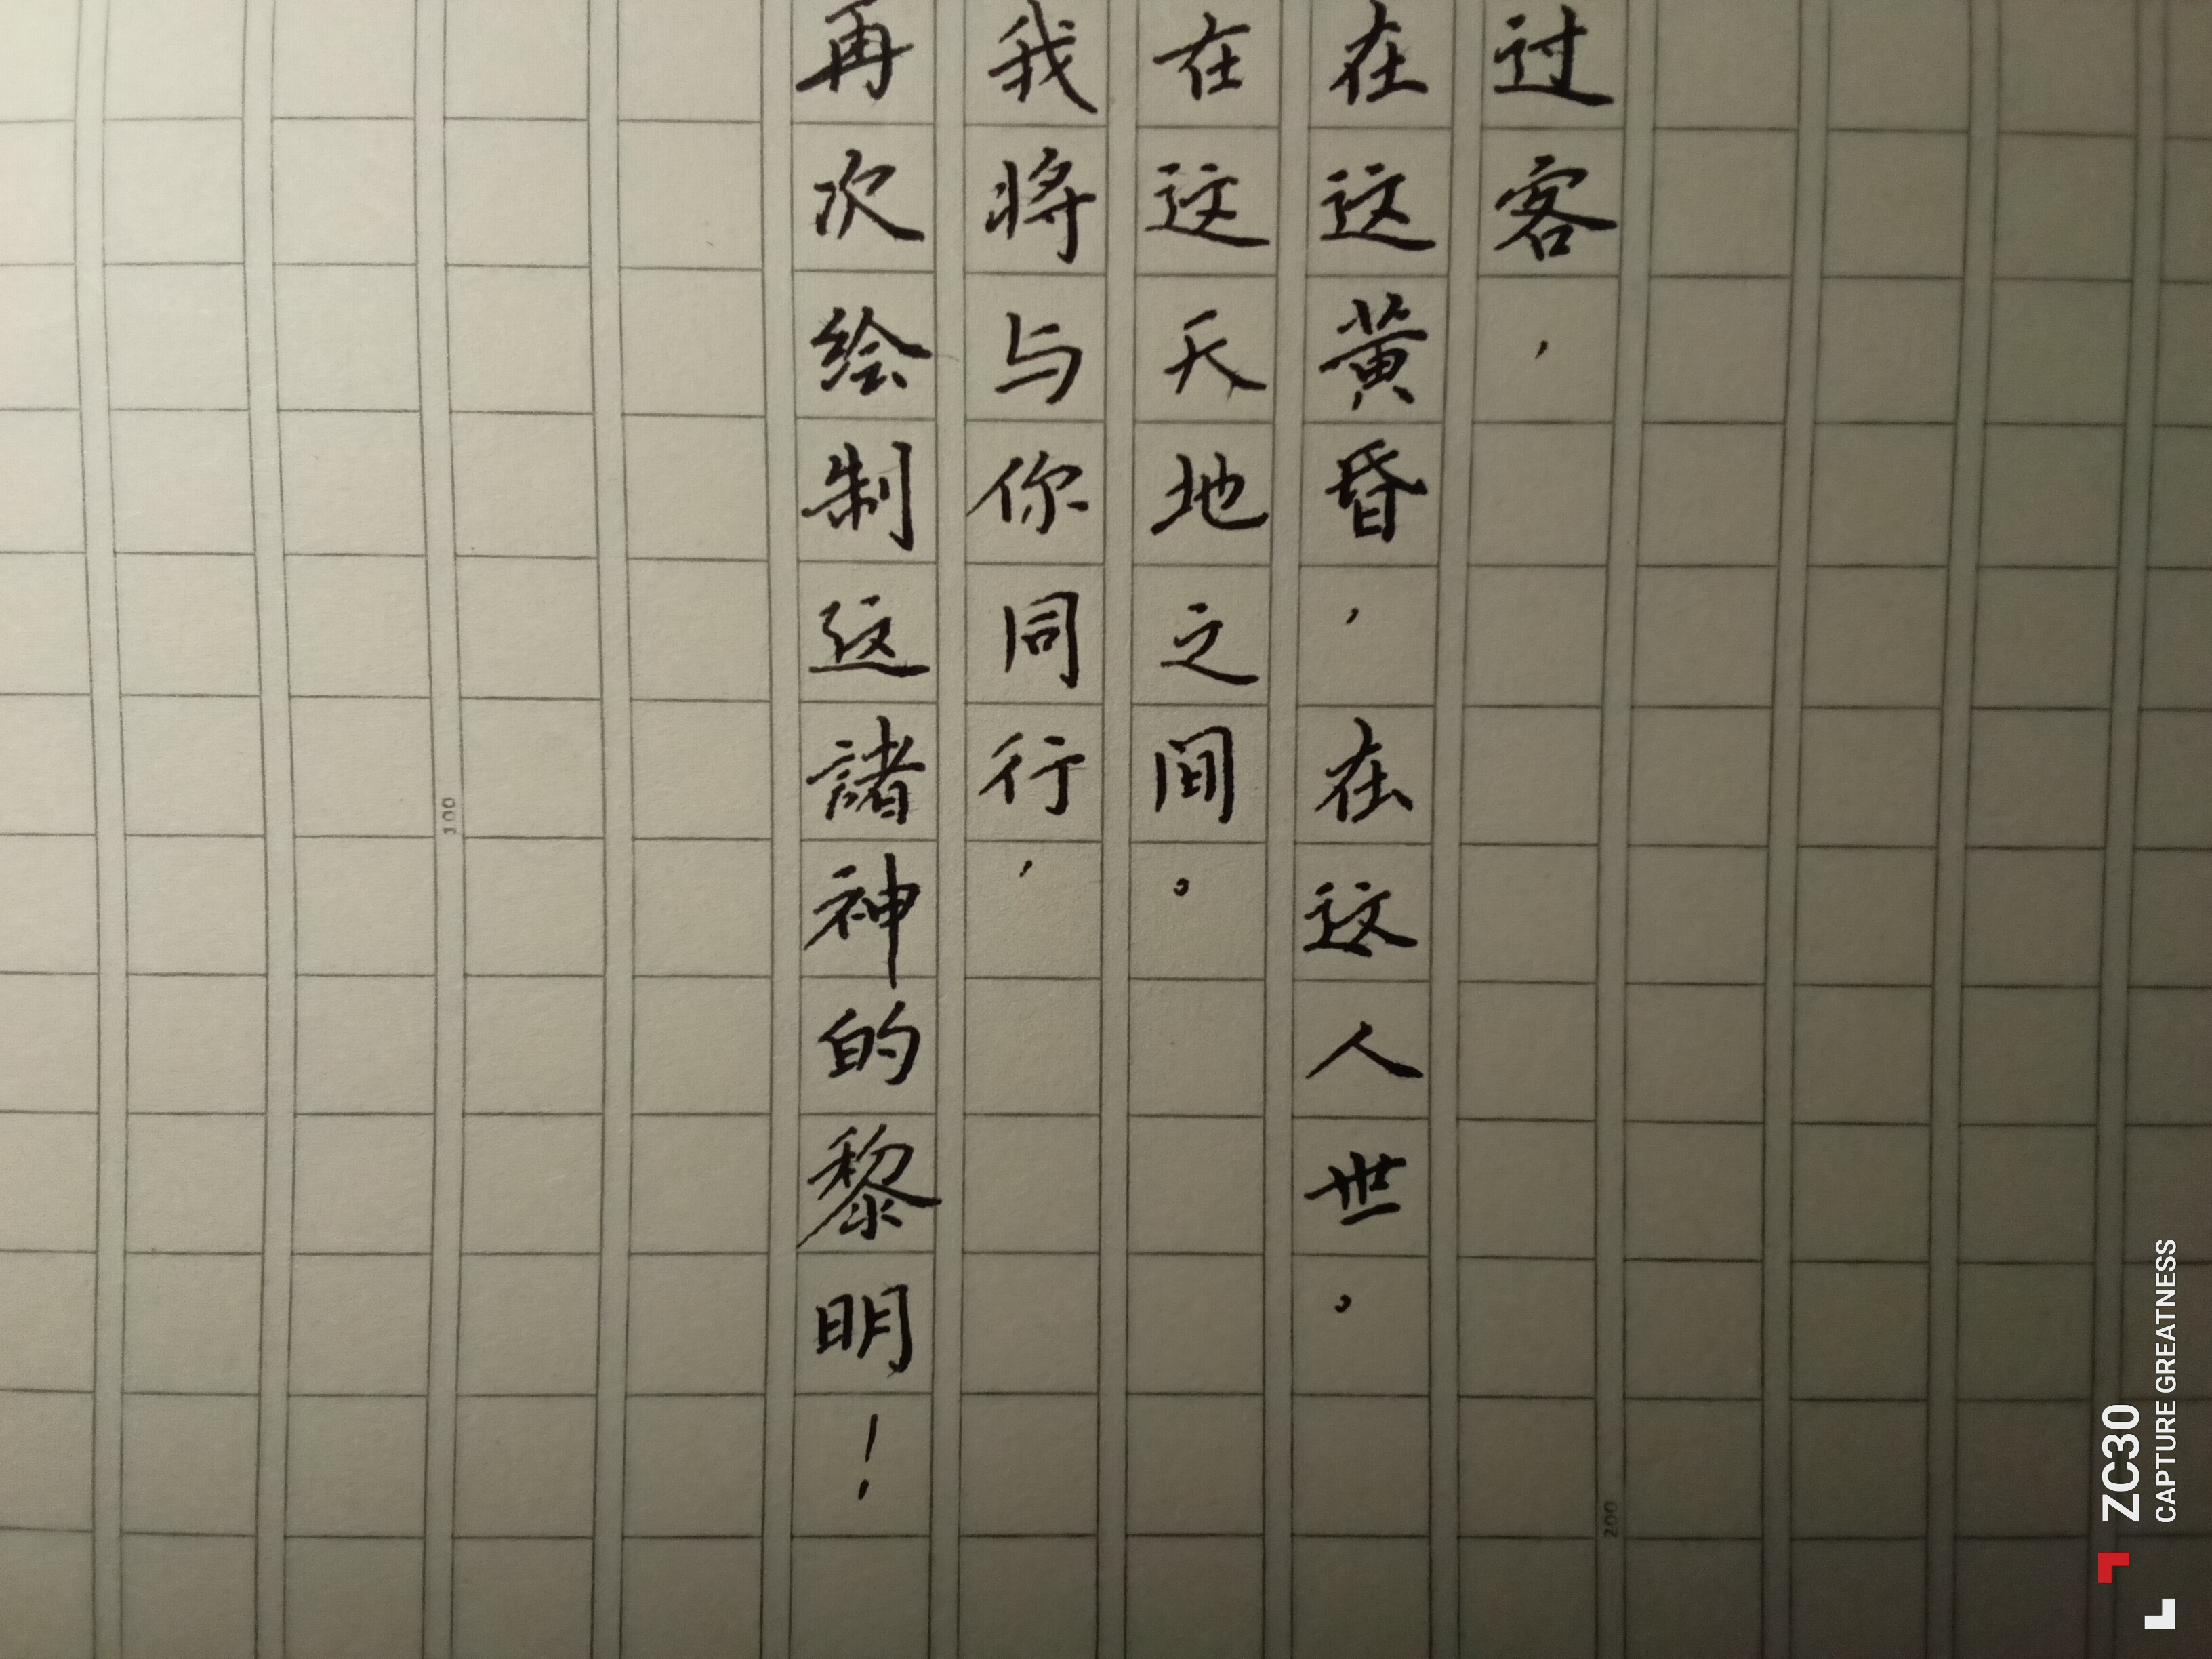 过客，
在这黄昏，在这人世。
在这天地之间。
我将与你同行，
再次绘制这諸神的黎明！
100
200
ZC30
CAPTURE GREATNESS